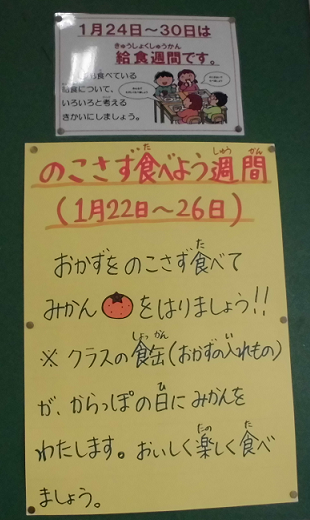 1月24日～30日は
きゅうしょくしゅうかん
給食週間です。
食べている
給食について、
いろいろと考える
きかいにしましょう。
のこさず食べよう週間
(1月22日～26日)
おかずをのこさず食べて
みかんをはりましょう!!
※クラスの食缶(おかずの入れもの)
が、からっぽの日にみかんを
わたします。おいしく楽しく食べ
ましょう。